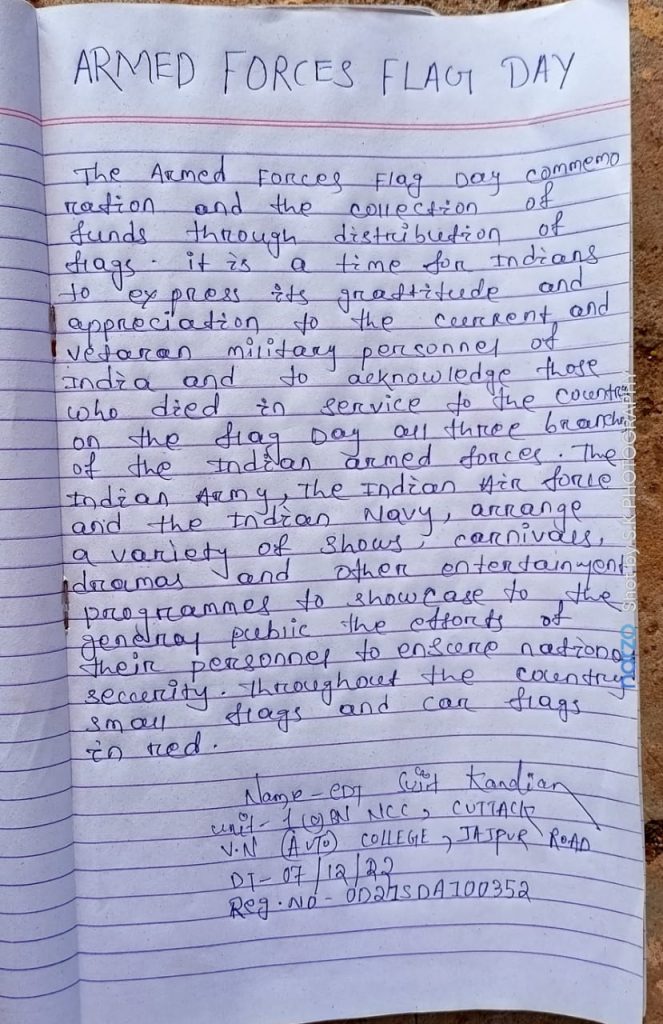 ARMED FORCES FLAG DAY
The Armed Forces Flag Day commemo
ration and the collection of
funds through distribution of
flags. it is a time for Indians
to express its grattitude and
appreciation to the current and
vetaran military personnel of
India and to acknowledge those
who died in service to the country
on the flag Day all three branch
of the Indian armed forces. The
Indian Army, The Indian Air force
and the Indian Navy, arrange
a variety of shows, carnivals,
dramas and other entertainment
programmes to showcase to the
general public the efforts of
their personnel to ensure national
security. Throughout the country
small flags and car flags
in red.
Name - CDT Kandian
Unit - 1 (O) BN NCC, CUTTACK
V.N (AUTO) COLLEGE, JAJPUR ROAD
DT - 07/12/22
Reg. No - OD21SDA100352
narzo Shot by S.K PHOTOGRAPHY